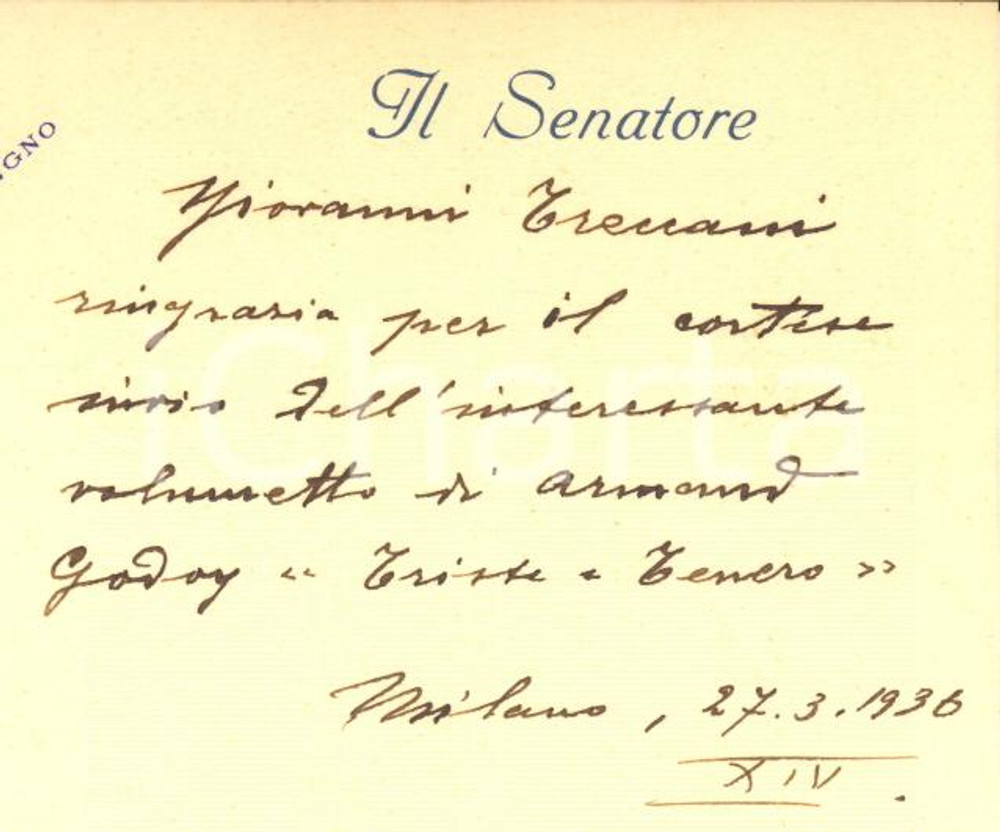 Il Senatore
GNO
Giovanni Treccani
ringrazia per il cortese
invio dell'interessante
volumetto di Armand
Godoy « Triste e Tenero »
Milano, 27.3.1936
XIV.
iCharta